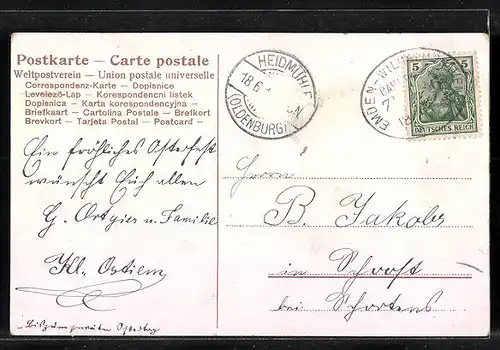 Postkarte - Carte postale
Weltpostverein - Union postale universelle
Correspondenz-Karte - Dopisnice
Levelező-Lap - Korespondencni listek
Dopisnica - Karta korespondencyjna -
Briefkaart - Cartolina Postale - Brefkort
Brevkort - Tarjeta Postal - Postcard -
HEIDMÜHLE
18.6
(OLDENBURG)
EMDEN-WILH
5 5
DEUTSCHES REICH
Ein fröhliches Osterfest
wünscht Euch allen
G. Ortgies u. Familie
Kl. Ostiem
Herrn
B. Jakobs
in Schoost
bei Schortens